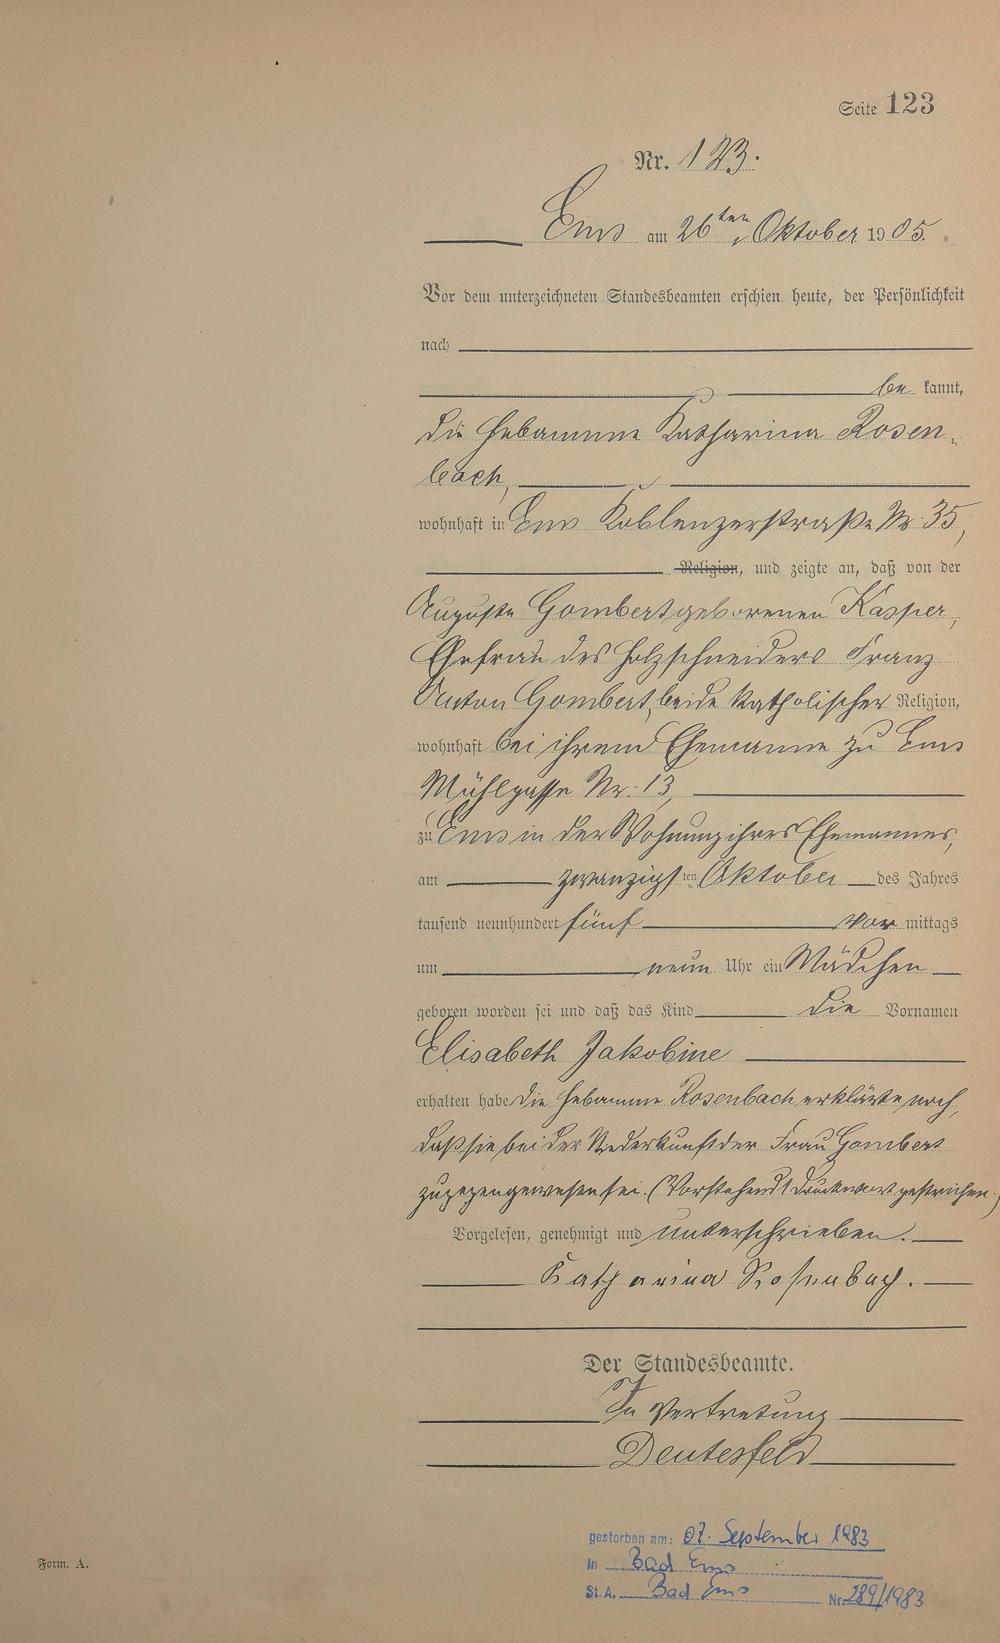 Seite 123
Nr. 123.
Ems am 26ten Oktober 1905.
Vor dem unterzeichneten Standesbeamten erschien heute, der Persönlichkeit
nach
be kannt,
die Hebamme Katharina Rosen-
bach,
wohnhaft in Ems Koblenzerstraße Nr. 35,
Religion, und zeigte an, daß von der
Auguste Gombert geborenen Kasper,
Ehefrau des Holzschneiders Franz
Anton Gombert, beide katholischer Religion,
wohnhaft bei ihrem Ehemanne zu Ems
Mühlgasse Nr. 13,
zu Ems in der Wohnung ihres Ehemannes,
am zwanzigsten Oktober des Jahres
tausend neunhundert fünf vor mittags
um neun Uhr ein Mädchen
geboren worden sei und daß das Kind die Vornamen
Elisabeth Jakobine
erhalten habe die Hebamme Rosenbach erklärte noch,
daß sie bei der Niederkunft der Frau Gombert
zugegen gewesen sei. (Vorstehend 1 Druckwort gestrichen.)
Vorgelesen, genehmigt und unterschrieben.
Katharina Rosenbach.
Der Standesbeamte.
In Vertretung
Deutesfeld
gestorben am: 07. September 1983
in Bad Ems
St.A. Bad Ems Nr. 289/1983
Form. A.